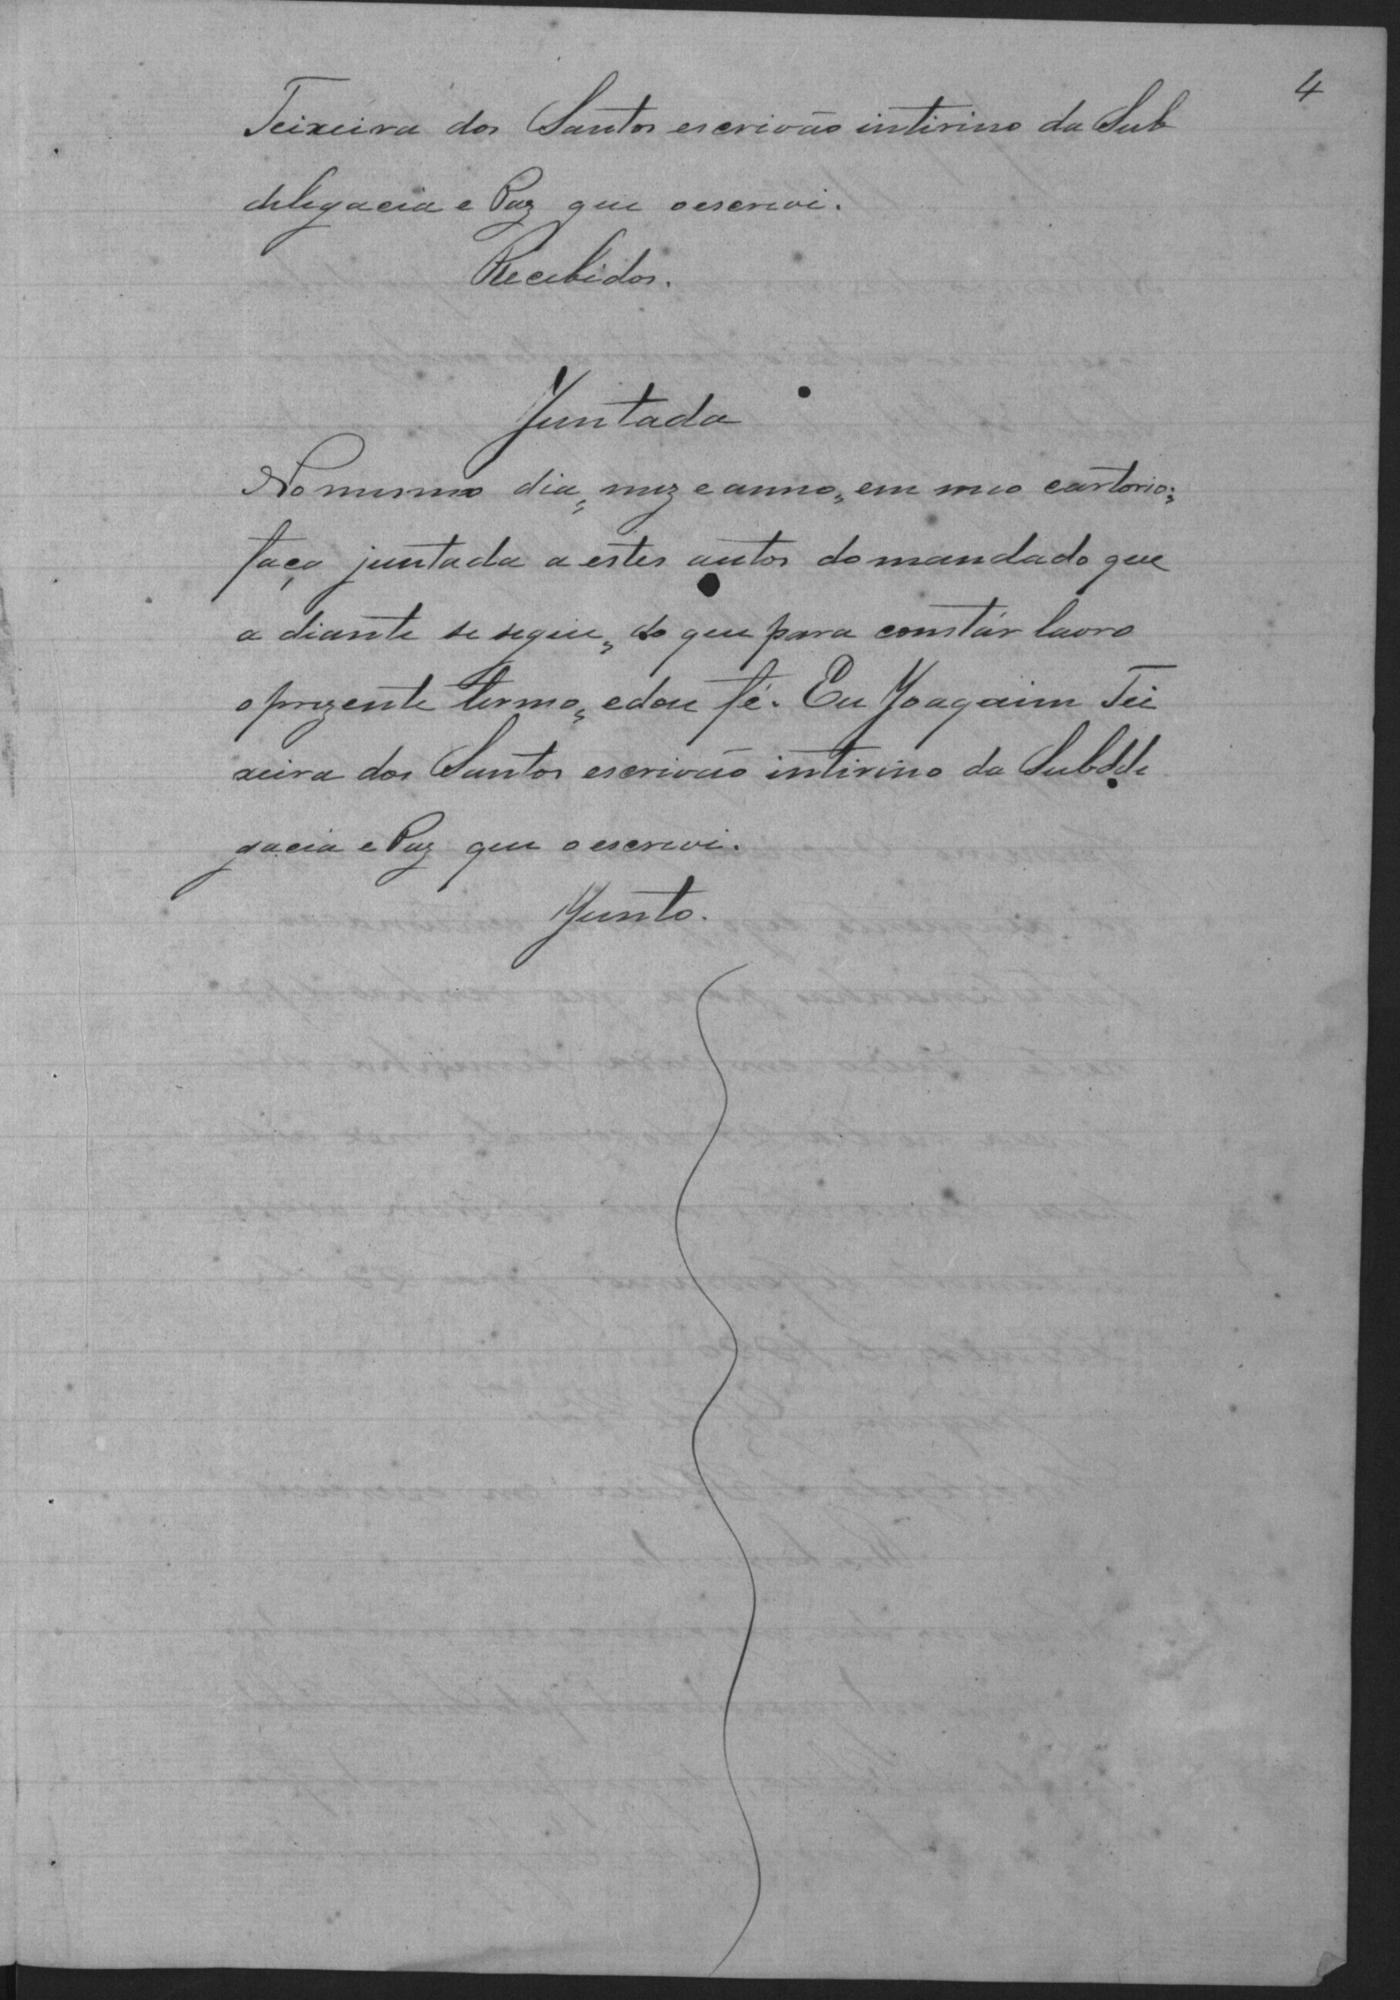 4
Teixeira dos Santos escrivão intirino da Sub
delegacia e Paz que o escrevi.
Recebidos.
Juntada
No mesmo dia, mez e anno, em meo cartorio;
faço juntada a estes autos do mandado que
a diante se segue, do que para constár lavro
o prezente termo, e dou fé. Eu Joaquim Tei
xeira dos Santos escrivão intirino da Subdele
gacia e Paz que o escrevi.
Junto.